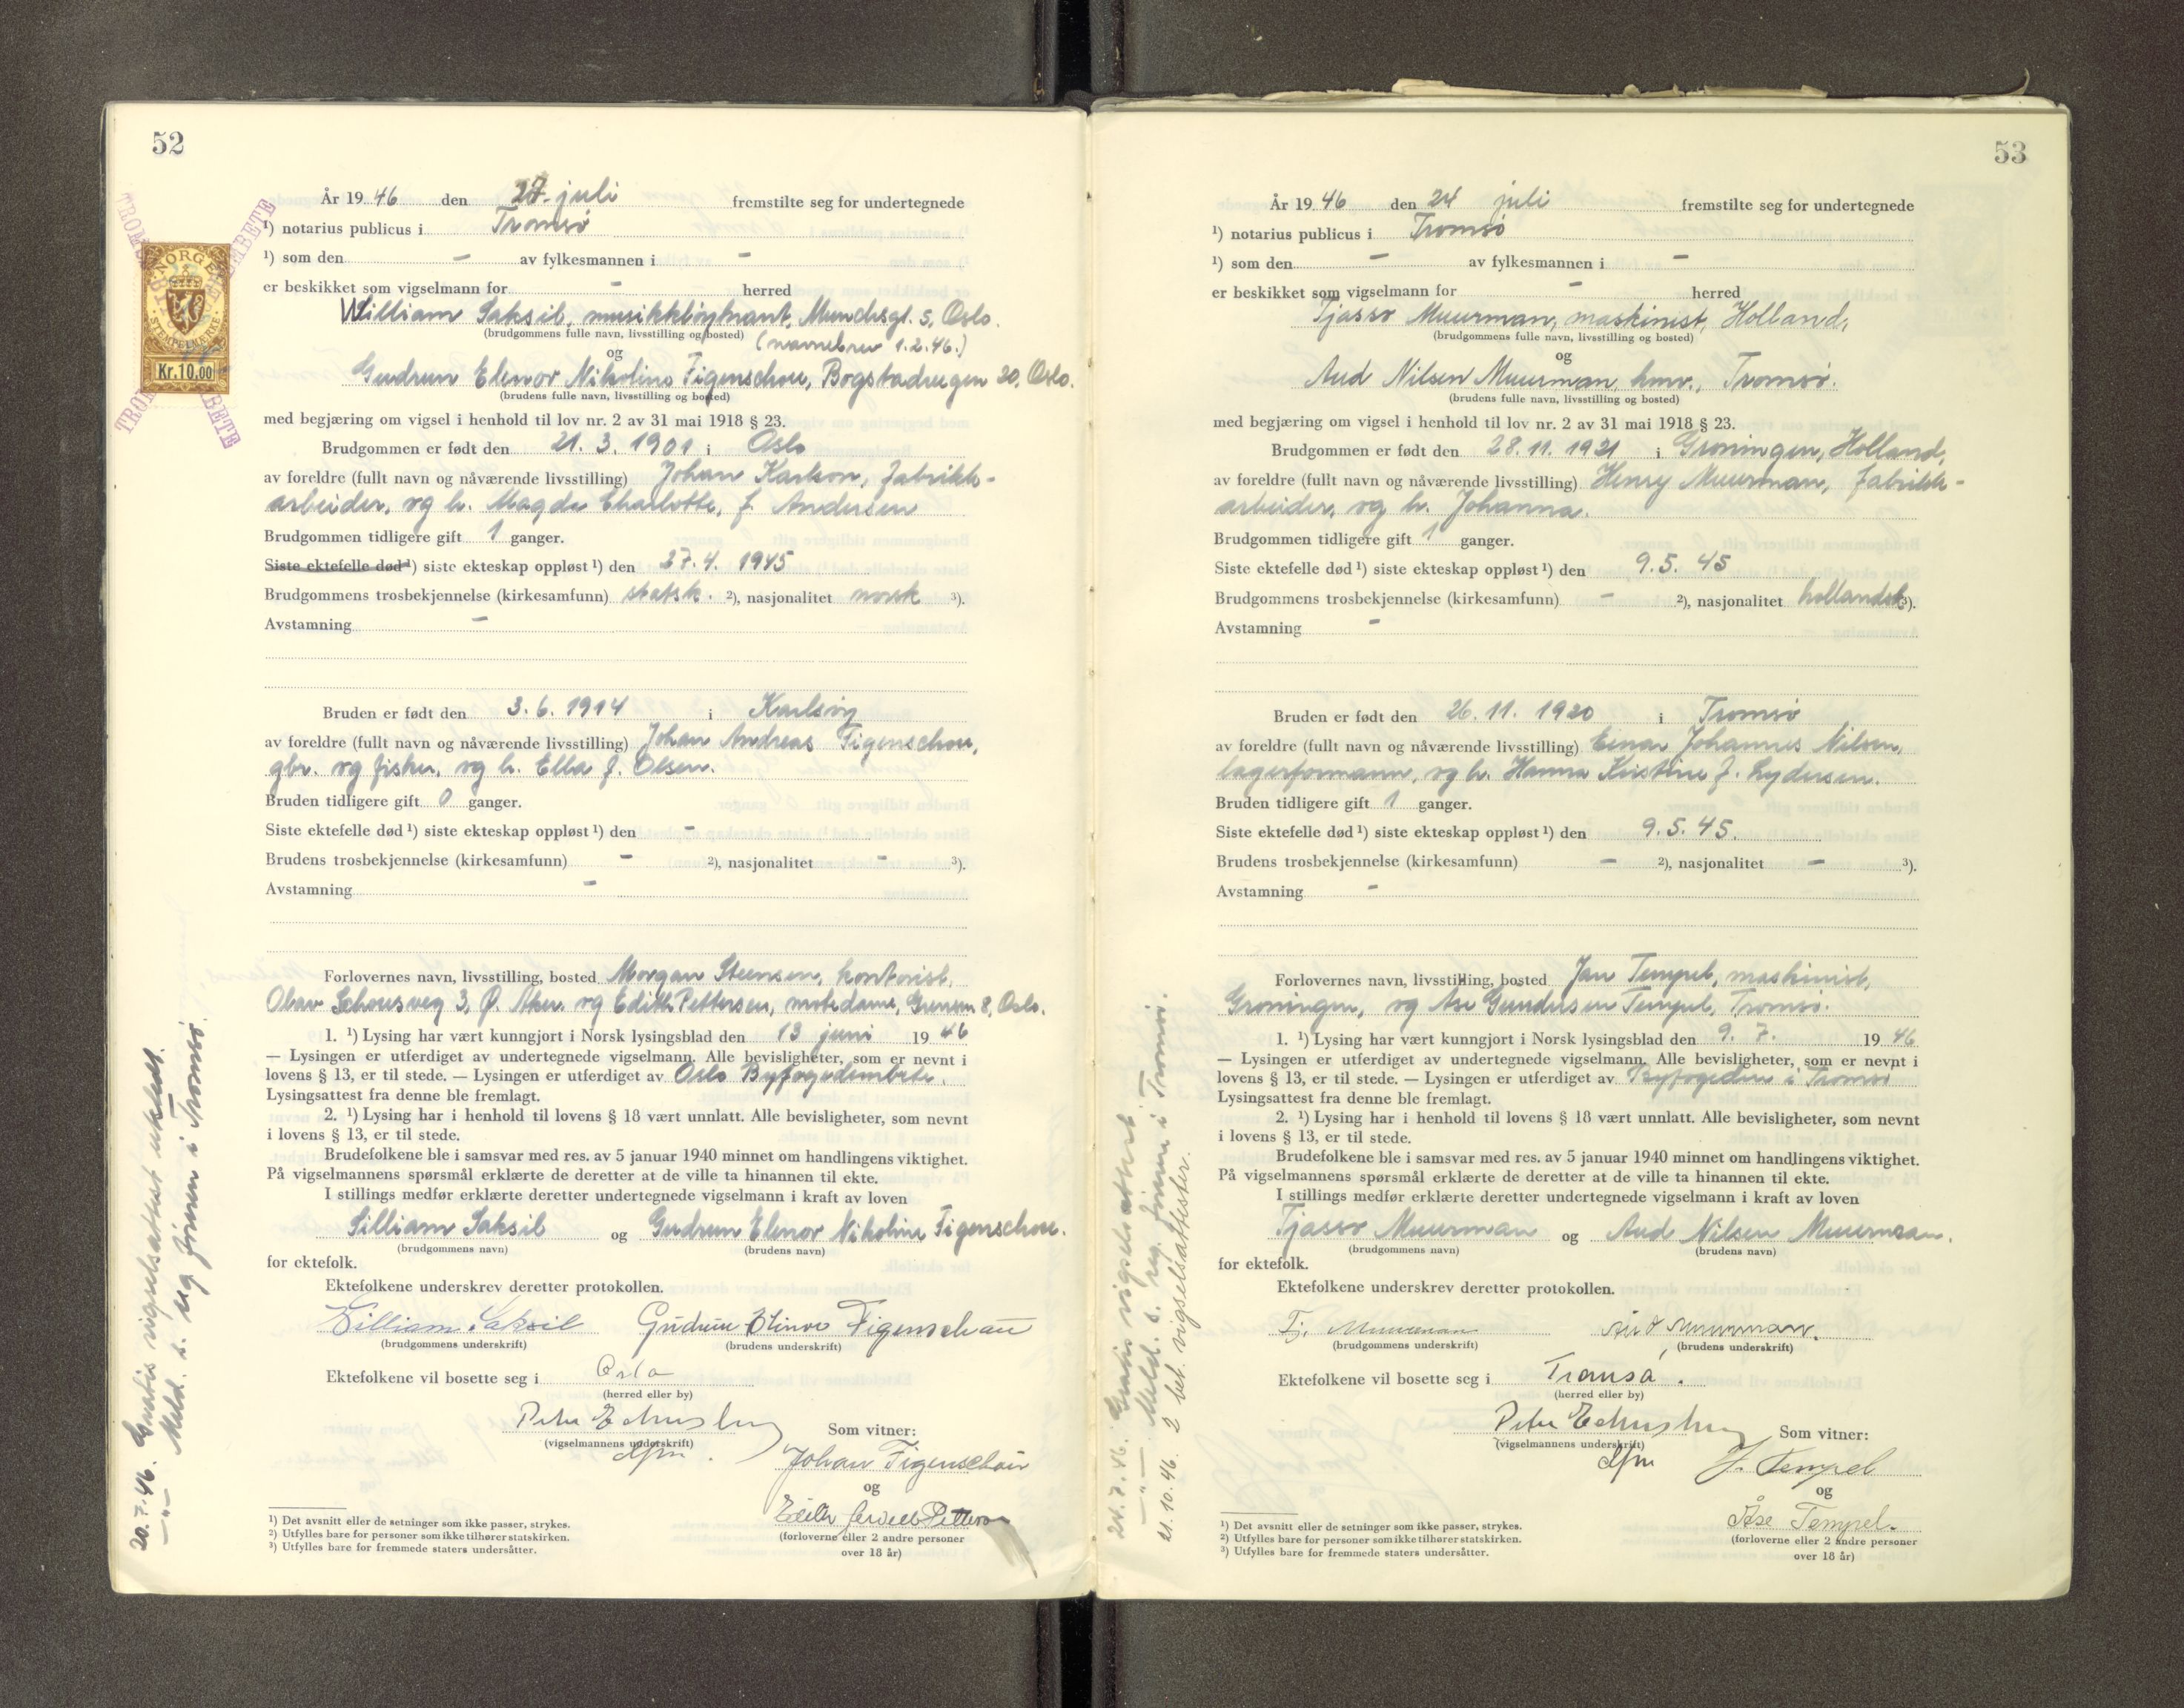 52
År 19 46 den 20. juli fremstilte seg for undertegnede
¹) notarius publicus i Tromsø
¹) som den – av fylkesmannen i –
er beskikket som vigselmann for – herred
William Saksil, musikkløytnant, Munchsgt. 5, Oslo.
(brudgommens fulle navn, livsstilling og bosted) (navnebrev 1.2.46.)
og
Gudrun Elenor Nikoline Figenschou, Bogstadvegen 20, Oslo.
(brudens fulle navn, livsstilling og bosted)
med begjæring om vigsel i henhold til lov nr. 2 av 31 mai 1918 § 23.
Brudgommen er født den 21. 3. 1901 i Oslo
av foreldre (fullt navn og nåværende livsstilling) Johan Karlson, fabrikk-
arbeider, og h. Magda Charlotte, f. Andersen
Brudgommen tidligere gift 1 ganger.
Siste ektefelle død ¹) siste ekteskap oppløst ¹) den 27.4. 1945
Brudgommens trosbekjennelse (kirkesamfunn) statsk. ²), nasjonalitet norsk ³).
Avstamning –
Bruden er født den 3. 6. 1914 i Karlsøy
av foreldre (fullt navn og nåværende livsstilling) Johan Andreas Figenschou,
gbr. og fisker, og h. Ella f. Olsen.
Bruden tidligere gift 0 ganger.
Siste ektefelle død ¹) siste ekteskap oppløst ¹) den –
Brudens trosbekjennelse (kirkesamfunn) – ²), nasjonalitet – ³).
Avstamning –
Forlovernes navn, livsstilling, bosted Morgan Steensen, kontorist,
Olav Schousveg 3, Ø. Aker. og Edith Pettersen, motedame, Grensen 8, Oslo.
1. ¹) Lysing har vært kunngjort i Norsk lysingsblad den 13 juni 19 46
— Lysingen er utferdiget av undertegnede vigselmann. Alle bevisligheter, som er nevnt i
lovens § 13, er til stede. — Lysingen er utferdiget av Oslo Byfogedembete.
Lysingsattest fra denne ble fremlagt.
2. ¹) Lysing har i henhold til lovens § 18 vært unnlatt. Alle bevisligheter, som nevnt
i lovens § 13, er til stede.
Brudefolkene ble i samsvar med res. av 5 januar 1940 minnet om handlingens viktighet.
På vigselmannens spørsmål erklærte de deretter at de ville ta hinannen til ekte.
I stillings medfør erklærte deretter undertegnede vigselmann i kraft av loven
Silliam Saksil og Gudrun Elenor Nikoline Figenschou.
(brudgommens navn) (brudens navn)
for ektefolk.
Ektefolkene underskrev deretter protokollen.
William Saksil Gudrun Elinor Figenschau
(brudgommens underskrift) (brudens underskrift)
Ektefolkene vil bosette seg i Oslo
(herred eller by)
(vigselmannens underskrift) Som vitner:
Johan Figenschau
og
(forloverne eller 2 andre personer
over 18 år)
¹) Det avsnitt eller de setninger som ikke passer, strykes.
²) Utfylles bare for personer som ikke tilhører statskirken.
³) Utfylles bare for fremmede staters undersåtter.
20.7.46. Gratis vigselsattest utstedt.
—"— Meld. t. reg. føreren i Tromsø.
NORGE
STEMPELMERKE
Kr.10,00
53
År 19 46 den 24 juli fremstilte seg for undertegnede
¹) notarius publicus i Tromsø
¹) som den – av fylkesmannen i –
er beskikket som vigselmann for – herred
Tjasso Muurman, maskinist, Holland,
(brudgommens fulle navn, livsstilling og bosted)
og
Aud Nilsen Muurman, hmv., Tromsø.
(brudens fulle navn, livsstilling og bosted)
med begjæring om vigsel i henhold til lov nr. 2 av 31 mai 1918 § 23.
Brudgommen er født den 28. 11. 1921 i Groningen, Holland,
av foreldre (fullt navn og nåværende livsstilling) Henry Muurman, fabrikk-
arbeider, og h. Johanna.
Brudgommen tidligere gift 1 ganger.
Siste ektefelle død ¹) siste ekteskap oppløst ¹) den 9. 5. 45
Brudgommens trosbekjennelse (kirkesamfunn) – ²), nasjonalitet hollandsk ³).
Avstamning –
Bruden er født den 26. 11. 1920 i Tromsø
av foreldre (fullt navn og nåværende livsstilling) Einar Johannes Nilsen,
lagerformann, og h. Hanna Kristine f. Lydersen.
Bruden tidligere gift 1 ganger.
Siste ektefelle død ¹) siste ekteskap oppløst ¹) den 9. 5. 45.
Brudens trosbekjennelse (kirkesamfunn) – ²), nasjonalitet – ³).
Avstamning –
Forlovernes navn, livsstilling, bosted Jan Tempel, maskinist,
Groningen, og Åse Gundersen Tempel, Tromsø.
1. ¹) Lysing har vært kunngjort i Norsk lysingsblad den 9. 7. 19 46
— Lysingen er utferdiget av undertegnede vigselmann. Alle bevisligheter, som er nevnt i
lovens § 13, er til stede. — Lysingen er utferdiget av Byfogeden i Tromsø
Lysingsattest fra denne ble fremlagt.
2. ¹) Lysing har i henhold til lovens § 18 vært unnlatt. Alle bevisligheter, som nevnt
i lovens § 13, er til stede.
Brudefolkene ble i samsvar med res. av 5 januar 1940 minnet om handlingens viktighet.
På vigselmannens spørsmål erklærte de deretter at de ville ta hinannen til ekte.
I stillings medfør erklærte deretter undertegnede vigselmann i kraft av loven
Tjasso Muurman og Aud Nilsen Muurman.
(brudgommens navn) (brudens navn)
for ektefolk.
Ektefolkene underskrev deretter protokollen.
Tj. Muurman Aud Muurman.
(brudgommens underskrift) (brudens underskrift)
Ektefolkene vil bosette seg i Tromsø.
(herred eller by)
(vigselmannens underskrift) Som vitner:
J. Tempel
og
Åse Tempel.
(forloverne eller 2 andre personer
over 18 år)
¹) Det avsnitt eller de setninger som ikke passer, strykes.
²) Utfylles bare for personer som ikke tilhører statskirken.
³) Utfylles bare for fremmede staters undersåtter.
24.7.46. Gratis vigselsattest
—"— Meld. t. reg. føreren i Tromsø.
21.10.46. 2 bet. vigselsattester.